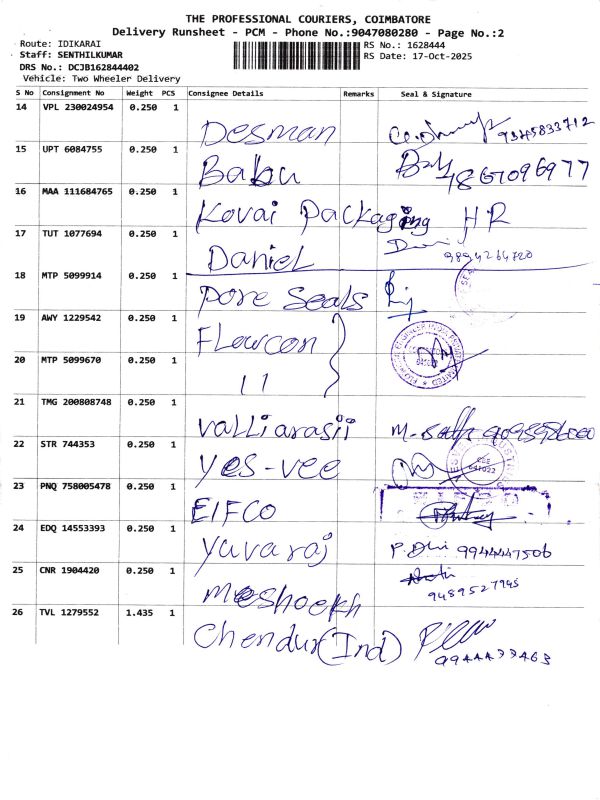 THE PROFESSIONAL COURIERS, COIMBATORE
Delivery Runsheet - PCM - Phone No.:9047080280 - Page No.:2
Route: IDIKARAI
RS No.: 1628444
Staff: SENTHILKUMAR
RS Date: 17-Oct-2025
DRS No.: DCJB162844402
Vehicle: Two Wheeler Delivery
S No Consignment No Weight PCS Consignee Details Remarks Seal & Signature
14 VPL 230024954 0.250 1
Desman 9345833712
15 UPT 6084755 0.250 1
Babu
16 MAA 111684765 0.250 1
Kovai Packaging HR
17 TUT 1077694 0.250 1
Daniel
18 MTP 5099914 0.250 1
Pore Seals
19 AWY 1229542 0.250 1
Flowcon
20 MTP 5099670 0.250 1
11
21 TMG 200808748 0.250 1
Valliarasii
22 STR 744353 0.250 1
Yes-vee
23 PNQ 758005478 0.250 1
EIFCO
24 EDQ 14553393 0.250 1
Yuvaraj 9944447506
25 CNR 1904420 0.250 1
9489527945
26 TVL 1279552 1.435 1
Chendur (Ind)